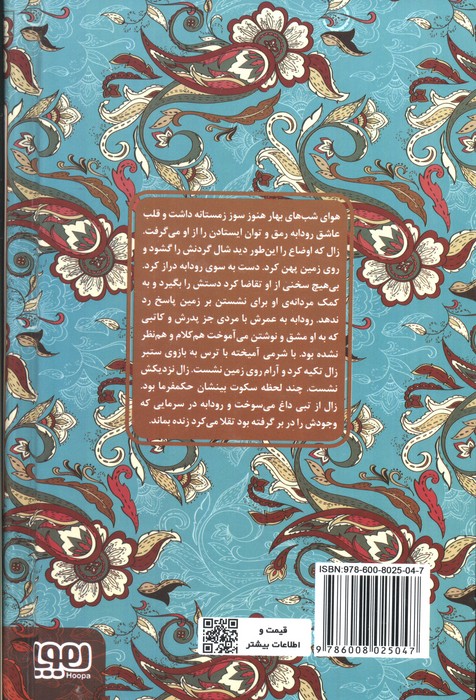 هوای شب‌های بهار هنوز سوز زمستانه داشت و قلب
عاشق رودابه رمق و توان ایستادن را از او می‌گرفت.
زال که اوضاع را این‌طور دید شال گردنش را گشود و
روی زمین پهن کرد. دست به سوی رودابه دراز کرد.
بی‌هیچ سخنی از او تقاضا کرد دستش را بگیرد و به
کمک مردانه‌ی او برای نشستن بر زمین پاسخ رد
ندهد. رودابه به عمرش با مردی جز پدرش و کاتبی
که به او مشق و نوشتن می‌آموخت هم‌کلام و هم‌نظر
نشده بود. با شرمی آمیخته با ترس به بازوی ستبر
زال تکیه کرد و آرام روی زمین نشست. زال نزدیکش
نشست. چند لحظه سکوت بینشان حکمفرما بود.
زال از تبی داغ می‌سوخت و رودابه در سرمایی که
وجودش را در بر گرفته بود تقلا می‌کرد زنده بماند.
ISBN:978-600-8025-04-7
9786008025047
قیمت و
اطلاعات بیشتر
هوپا
Hoopa